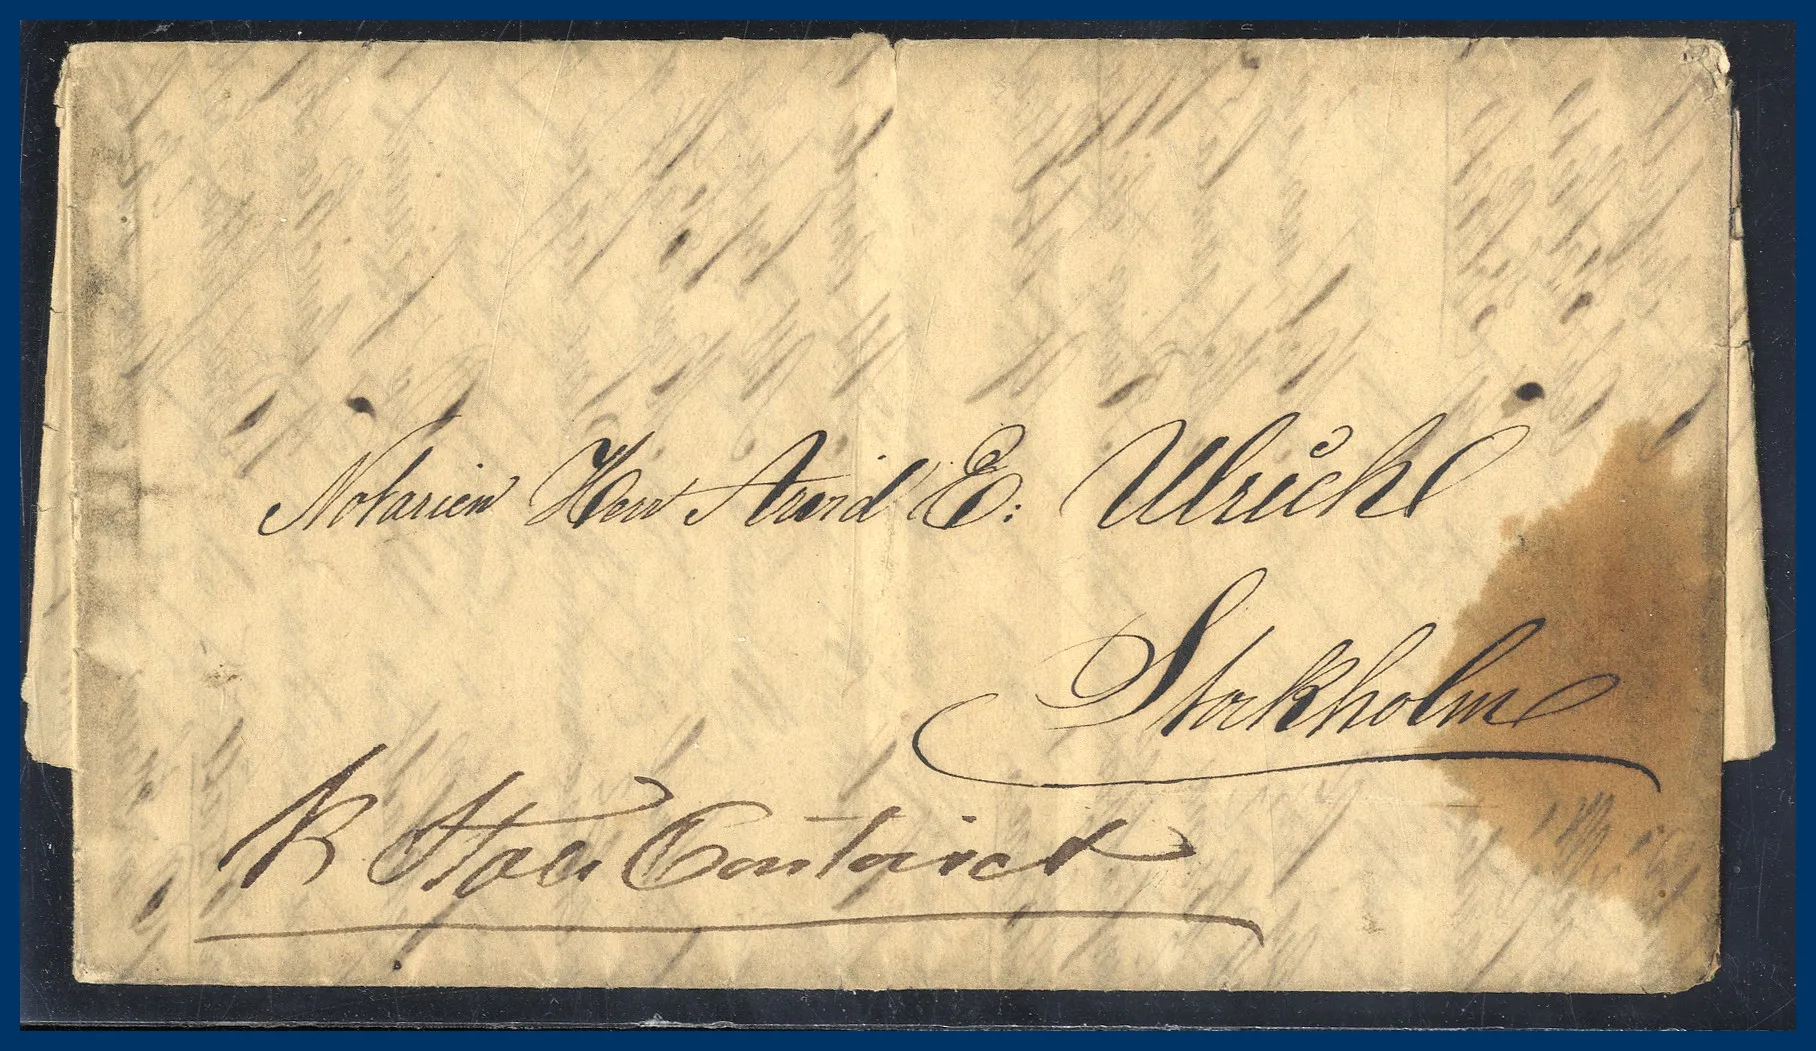 Notarien Herr Arvid E: Ulrich
Stockholm
Contoiret